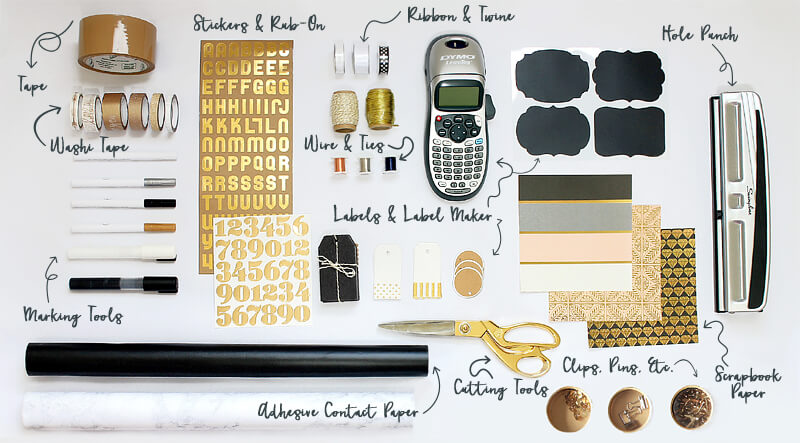 Stickers & Rub-On
Ribbon & Twine
Hole Punch
Tape
DYMO
Washi Tape
Wire & Ties
Labels & Label Maker
Marking Tools
Clips, Pins, Etc.
Scrapbook
Paper
Cutting Tools
Adhesive Contact Paper
AAABBBB
CCDDEEE
EFFFGGG
KKKLLL
OPPPQQQ
RRSSSST
TTUUUUU
123456
789012
345678
901234
567890